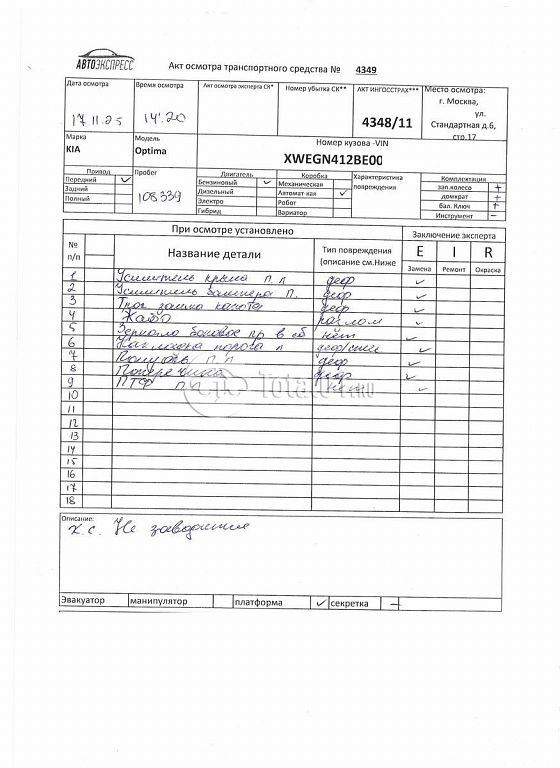 АВТОЭКСПРЕСС
Акт осмотра транспортного средства № 4349
Дата осмотра
17.11.25
Время осмотра
14:20
Акт осмотра эксперта СК*
Номер убытка СК**
АКТ ИНГОССТРАХ***
4348/11
Место осмотра:
г. Москва,
ул.
Стандартная д.6,
стр.17
Марка
KIA
Модель
Optima
Номер кузова -VIN
XWEGN412BE00
Привод
Передний ✓
Задний
Полный
Пробег
108339
Двигатель
Бензиновый ✓
Дизельный
Электро
Гибрид
Коробка
Механическая
Автомат-кая ✓
Робот
Вариатор
Характеристика
повреждения
Комплектация
зап.колесо +
домкрат +
бал. Ключ +
Инструмент –
При осмотре установлено
Заключение эксперта
№
п/п
Название детали
Тип повреждения
(описание см.Ниже
E I R
Замена Ремонт Окраска
1 Усилитель крыла п.л деф ✓
2 Усилитель бампера п. деф ✓
3 Трос замка капота деф ✓
4 разлом ✓
5 Зеркало боковое пр в сб нет ✓
6 Накладка порога п деф/
7 п п деф ✓
8 Поперечина деф ✓
9 ПТФ п п нет ✓
10
11
12
13
14
15
16
17
18
Total01.ru
Описание:
х.с. Не заводится
Эвакуатор манипулятор платформа ✓ секретка –